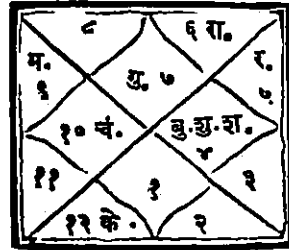 ८ ६ रा.
म. र.
गु. ७
९ ५
१० चं. बु.शु.श.
४
११ १ ३
१२ के. २